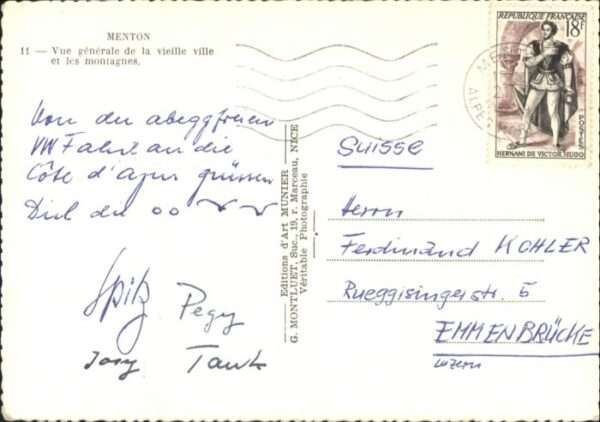 MENTON
11 — Vue générale de la vieille ville
et les montagnes.
Von der abeggfreien
VW Fahrt an die
Côte d'Azur grüssen
Dich die
Spitz Pegy
Tank
Editions d'Art MUNIER
G. MONTLUET, Suc., 19, r. Marceau, NICE
Véritable Photographie
REPUBLIQUE FRANÇAISE
18F
POSTES
HERNANI DE VICTOR HUGO
SUISSE
Herrn
Ferdinand KOHLER
Rueggisingerstr. 5
EMMENBRÜCKE
Luzern